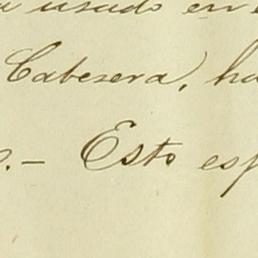 a usado en
Cabesera, ha
o.— Esto esp